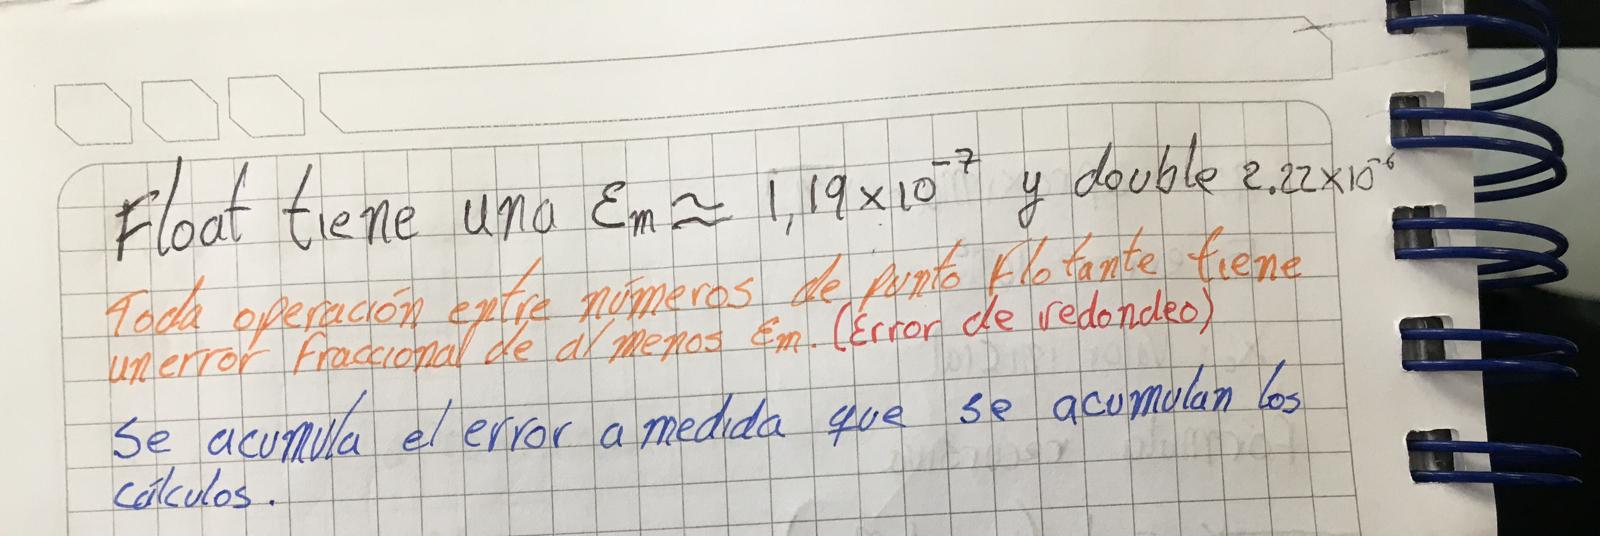 Float tiene una εm ≈ 1,19×10⁻⁷ y double 2.22×10⁻⁶
Toda operación entre números de punto flotante tiene
un error fraccional de al menos εm. (Error de redondeo)
Se acumula el error a medida que se acumulan los
cálculos.